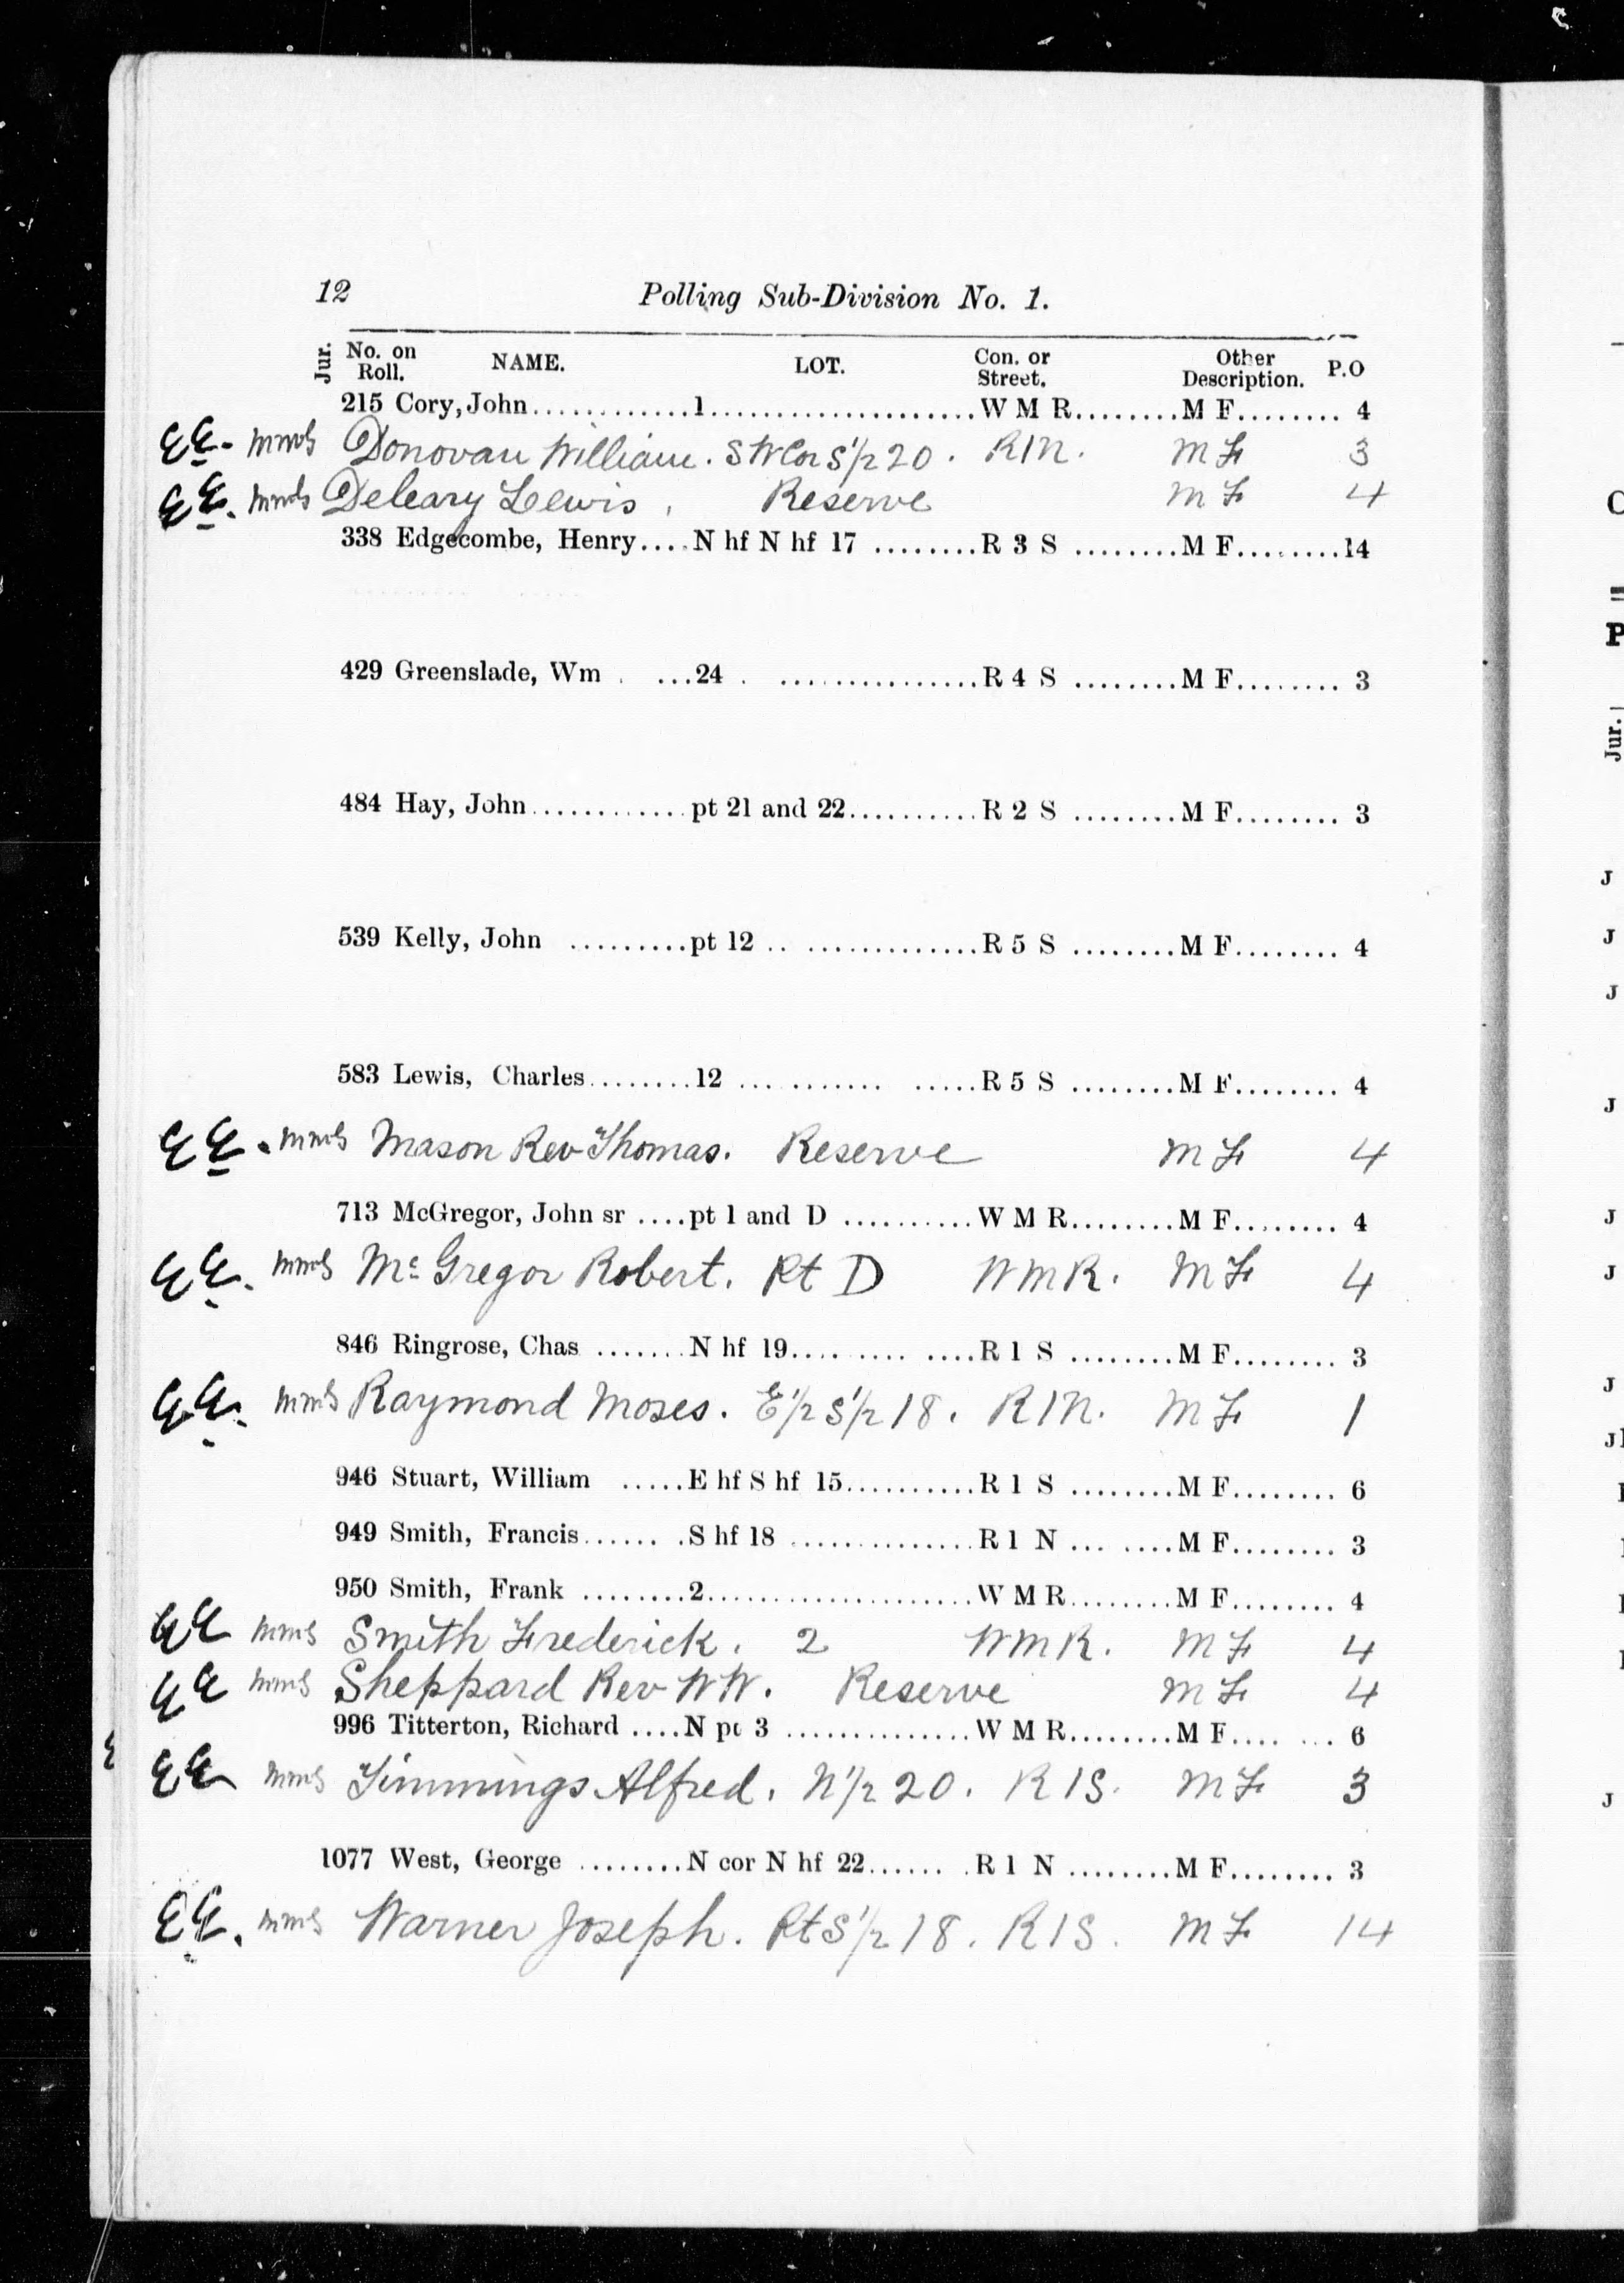 12 Polling Sub-Division No. 1.
Jur. No. on Roll. NAME. LOT. Con. or Street. Other Description. P.O
215 Cory, John.............1......................W M R.........M F......... 4
EE. Donovan William. S W Cor S 1/2 20. R 1 N. M F 3
EE. Deleary Lewis, Reserve M F 4
338 Edgecombe, Henry....N hf N hf 17 .........R 3 S .........M F.........14
429 Greenslade, Wm . ...24 . .................R 4 S .........M F......... 3
484 Hay, John.............pt 21 and 22...........R 2 S .........M F......... 3
539 Kelly, John ..........pt 12 .. ...............R 5 S .........M F......... 4
583 Lewis, Charles.........12 ............ ......R 5 S .........M F......... 4
EE. Mason Rev Thomas. Reserve M F 4
713 McGregor, John sr ....pt 1 and D ...........W M R.........M F......... 4
EE. McGregor Robert. Pt D W M R. M F 4
846 Ringrose, Chas .......N hf 19.... ..... .....R 1 S .........M F......... 3
EE. Raymond Moses. E 1/2 S 1/2 18. R 1 N. M F 1
946 Stuart, William ......E hf S hf 15...........R 1 S .........M F......... 6
949 Smith, Francis...... .S hf 18 ................R 1 N ... .....M F......... 3
950 Smith, Frank .........2......................W M R.........M F......... 4
EE Smith Frederick. 2 W M R. M F 4
EE Sheppard Rev W W. Reserve M F 4
996 Titterton, Richard ....N pt 3 ................W M R.........M F.... ... 6
EE Timmings Alfred. N 1/2 20. R 1 S. M F 3
1077 West, George .........N cor N hf 22...... .R 1 N .........M F......... 3
EE. Warner Joseph. Pt S 1/2 18. R 1 S. M F 14